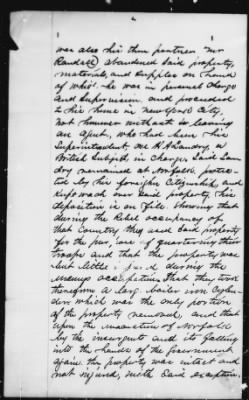 was also his then partner Mr
Randell) abandoned said property,
materials, and supplies on hand
of which he was in personal charge
and supervision and proceeded
to his home in New York City,
not however without leaving
an agent, who had been his
Superintendent one H A Landry, a
British Subject in charge. Said Lan
dry remained at Norfolk, protec
ted by his foreign Citizenship and
kept watch over said property. His
deposition is on file showing that
during the Rebel occupancy of
that Country they used said property
for the purpose of quartering their
troops and that the property was
but little injured during the
occupation. That they took
therefrom a large boiler iron Cylin-
der which was the only portion
of the property removed, and that
upon the evacuation of Norfolk
by the insurgents and its falling
into the hands of the government
again the property was intact and
not injured, with said exception.